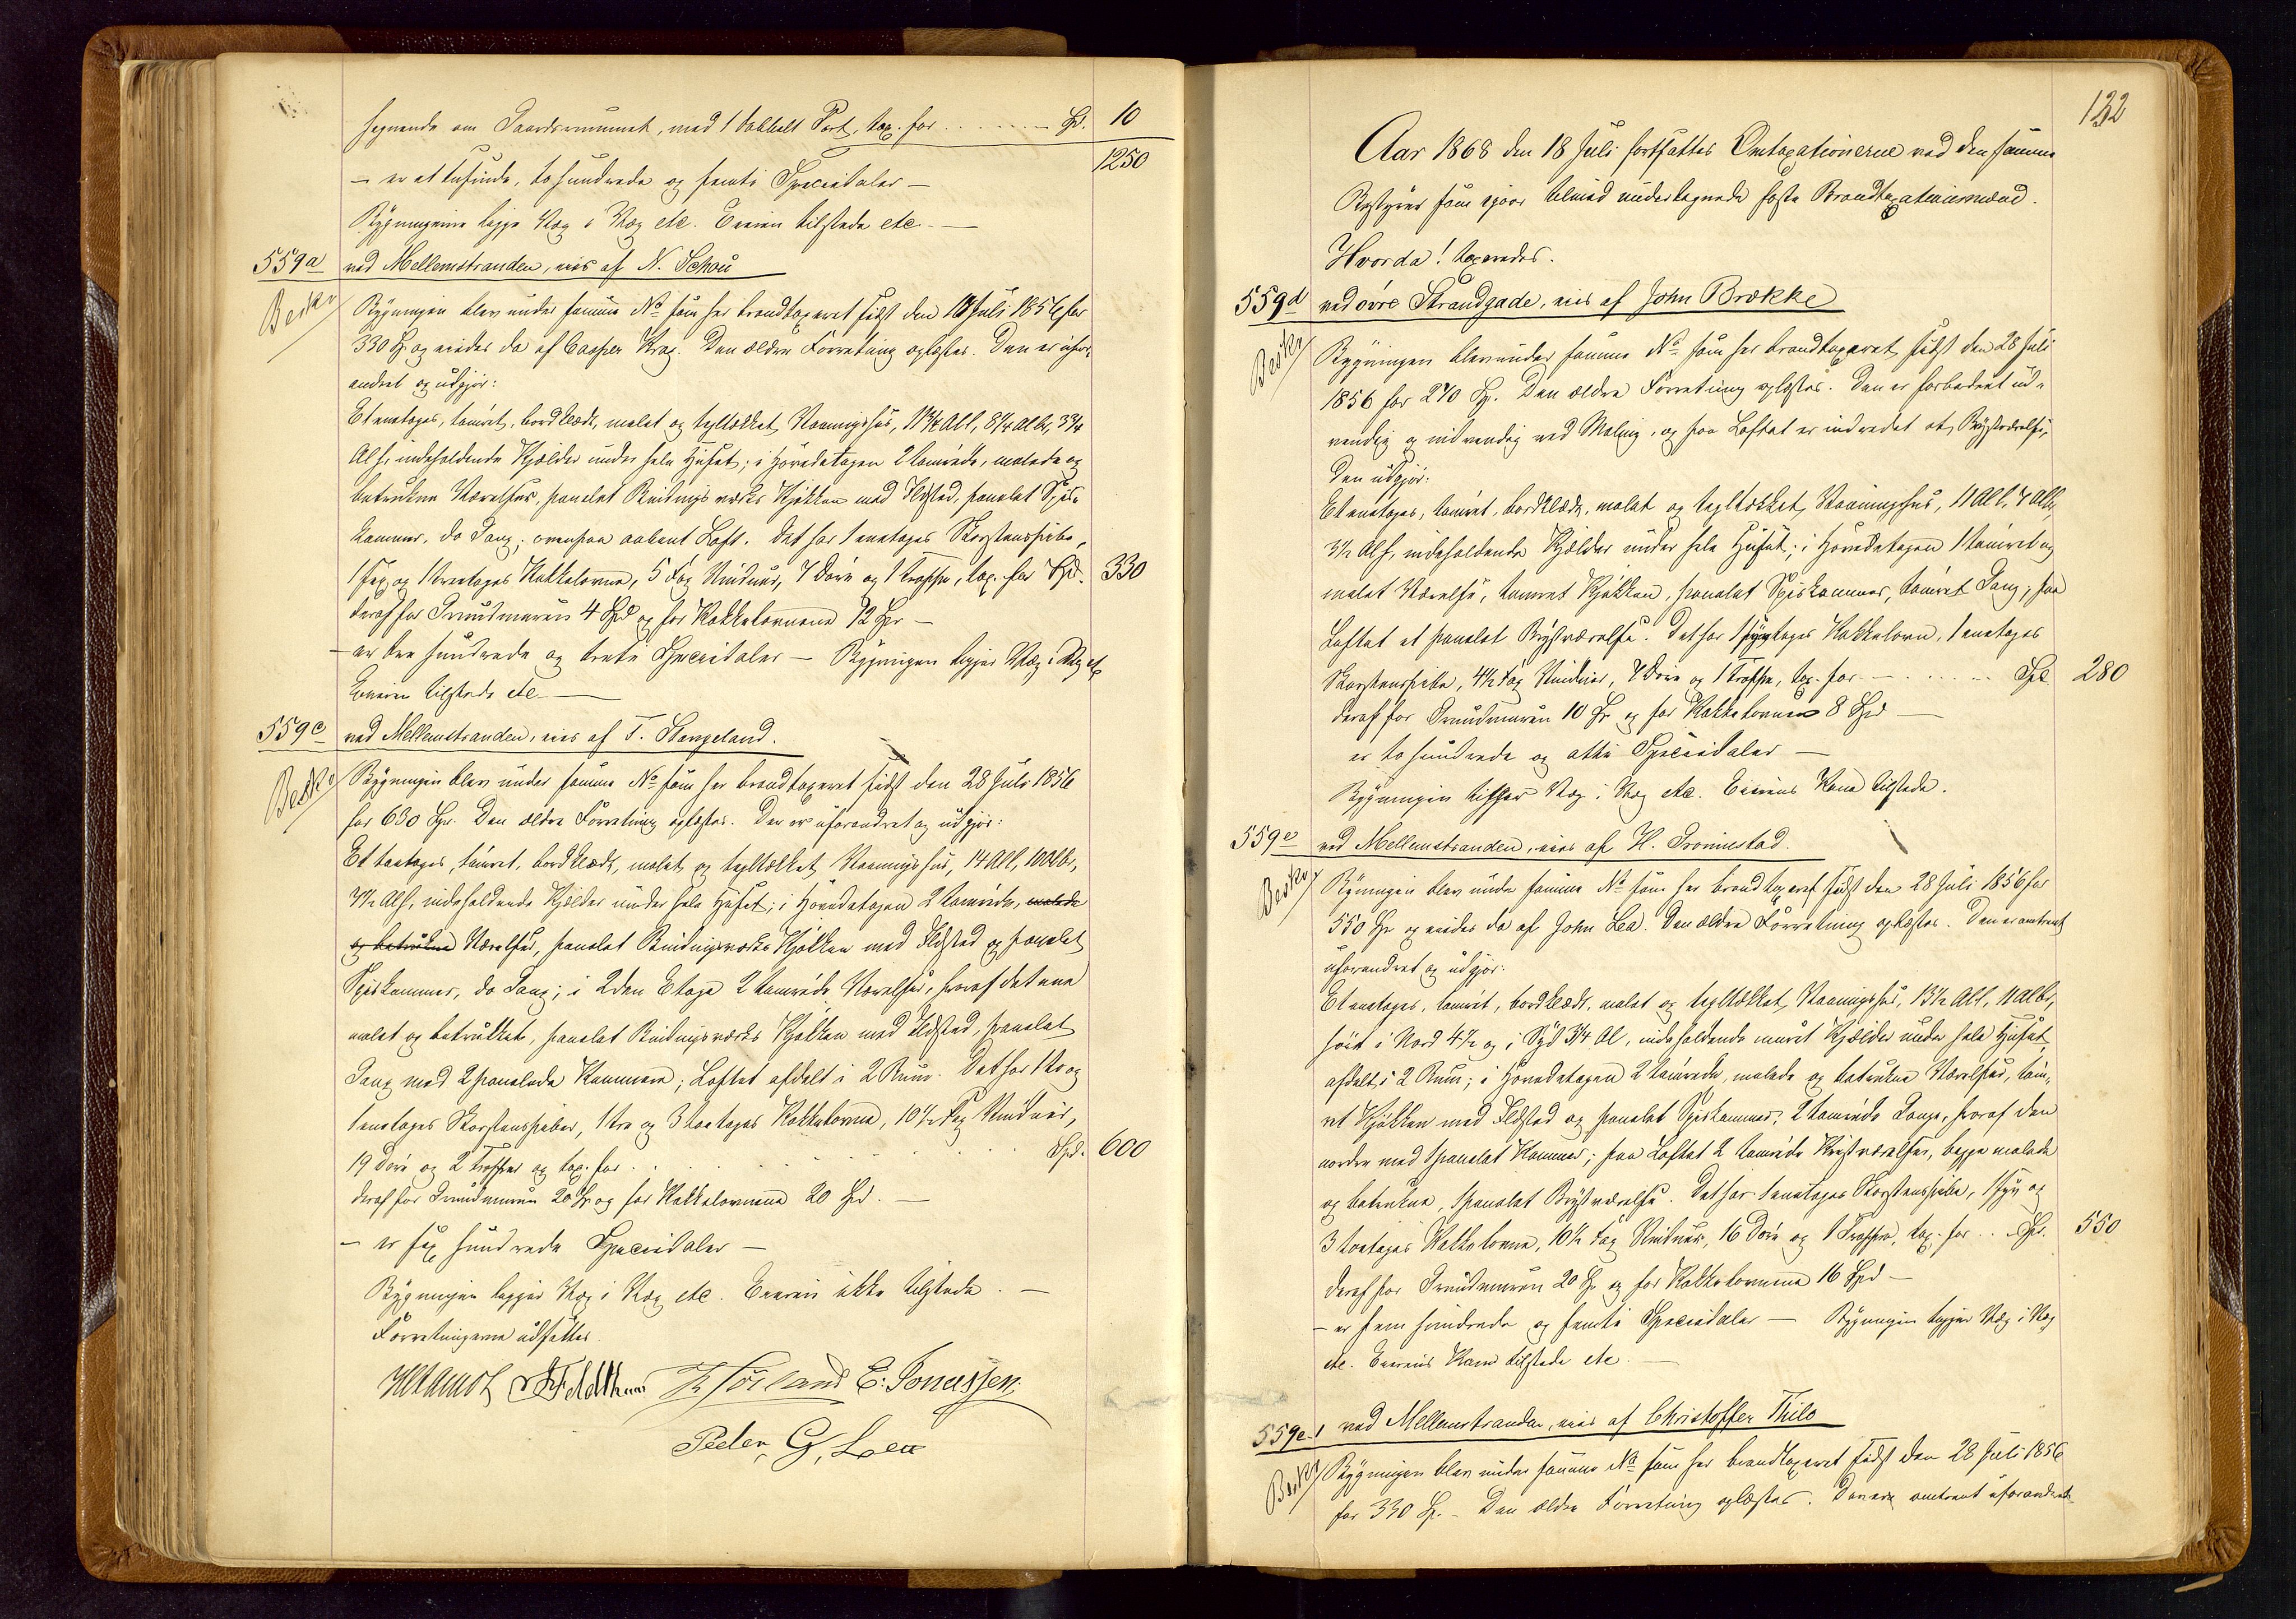 hegnende om Gaardsrummet, med 1 dobbelt Port, tax. for . . . . . . . Sp. 10
1250
– er et tusinde, tohundrede og femti Speciedaler –
Bygningerne ligge Væg i Væg etc. Eieren tilstede etc. –
559a ved Mellemstranden, eies af N. Schou
Beskr Bygningen blev under samme No som her brandtaxeret sidst den 18 Juli 1856 for
330 Sp og eiedes da af Casper Krag. Den ældre Forretning oplæstes. Den er ufor-
andret og udgjør:
Et enetages, tømret, bordklædt, malet og tegltækket Vaaningshus, 11 3/4 Al l, 8 1/4 Al br, 3 3/4
Al h, indeholdende Kjælder under hele Huset; i Hovedetagen 2 tømrede, malede og
betrukne Værelser, panelet Bindingsværks Kjøkken med Ildsted, panelet Spise
kammer, do Gang; ovenpaa aabent Loft. Det har 1 enetages Skorstenspibe,
1 sex og 1 treetages Kakkelovne, 5 Fag Vinduer, 7 Døre og 1 Trappe, tax. for Spd. 330
deraf for Grundmuren 4 Spd og for Kakkelovnene 12 Spd –
– er tre hundrede og treti Speciedaler – Bygningen ligger Væg i Væg etc
Eieren tilstede etc –
559c ved Mellemstranden, eies af T. Stangeland.
Beskr Bygningen blev under samme No som her brandtaxeret sidst den 28 Juli 1856
for 630 Spd. Den ældre Forretning oplæstes. Den er uforandret og udgjør:
Et toetages, tømret, bordklædt, malet og tegltækket Vaaningshus, 14 Al l, 10 Al br,
7 1/2 Al h, indeholdende Kjælder under hele Huset; i Hovedetagen 2 tømrede, malede
og betrukne Værelser, panelet Bindingsværks Kjøkken med Ildsted og panelet
Spiskammer, do Gang; i 2den Etage 2 tømrede Værelser, hvoraf det ene
malet og betrukket, panelet Bindingsværks Kjøkken med Ildsted, panelet
Gang med 2 panelede Kammere; Loftet afdelt i 2 Rum. Det har 1 to og
1 enetages Skorstenspiber, 1 tre og 3 toetages Kakkelovne, 10 1/2 Fag Vinduer,
19 Døre og 2 Trapper og tax. for . . . . . . Spd. 600
deraf for Grundmuren 20 Sp og for Kakkelovnene 20 Spd. –
– er sex hundrede Speciedaler –
Bygningen ligger Væg i Væg etc. Eieren ikke tilstede. –
Forretningerne udsattes.
E. Jonassen.
Peder G. Lea
122
Aar 1868 den 18 Juli fortsattes Omtaxationerne ved den samme
Bestyrer som igaar tilmed undertegnede faste Brandtaxationsmænd.
Hvorda! taxeredes.
559d ved øvre Strandgade, eies af John Brekke
Beskr Bygningen blev under samme No som her brandtaxeret sidst den 28 Juli
1856 for 270 Sp. Den ældre Forretning oplæstes. Den er forbedret ud-
vendig og indvendig ved Maling, og paa Loftet er indredet et Bryst værelse,
Den udgjør:
Et enetages, tømret, bordklædt, malet og tegltækket Vaaningshus, 11 Al l, 7 Al br,
3 1/2 Al h, indeholdende Kjælder under hele Huset; i Hovedetagen 1 tømret og
malet Værelse, tømret Kjøkken, panelet Spiskammer, tømret Gang; paa
Loftet et panelet Brystværelse. Det har 1 syvetages Kakkelovn, 1 enetages
Skorstenspibe, 4 1/2 Fag Vinduer, 7 Døre og 1 Trappe, tax. for – . . . . . Spd. 280
deraf for Grundmuren 10 Sp og for Kakkelovnen 8 Spd –
er to hundrede og otti Speciedaler –
Bygningen ligger Væg i Væg etc. Eierens Kone tilstede.
559e ved Mellemstranden, eies af H. Gronnestad.
Beskr Bygningen blev under samme No som her brandtaxeret sidst den 28 Juli 1856 for
550 Sp og eiedes da af John Lea. Den ældre Forretning oplæstes. Den er omtrent
uforandret og udgjør:
Et enetages, tømret, bordklædt, malet og tegltækket Vaaningshus, 13 1/2 Al l, 11 Al br,
høit i Nord 4 1/2 og i Syd 3 3/4 Al, indeholdende muret Kjælder under hele Huset,
afdelt i 2 Rum; i Hovedetagen 2 tømrede, malede og betrukne Værelser, tøm-
ret Kjøkken med Ildsted og panelet Spiskammer, 2 tømrede Gange, hvoraf den
nordre med panelet Kammer; paa Loftet 2 tømrede Kvistværelser, begge malede
og betrukne, 1 panelet Brystværelse. Det har 1 enetages Skorstenspibe, 1 syv og
3 toetages Kakkelovne, 10 1/2 Fag Vinduer, 16 Døre og 1 Trappe, tax. for . . . Spd. 550
deraf for Grundmuren 20 Sp og for Kakkelovnene 16 Spd –
– er fem hundrede og femti Speciedaler – Bygningen ligger Væg i Væg
etc. Eierens Kone tilstede etc. –
559e.1 ved Mellemstranden, eies af Christoffer Thilo
Beskr Bygningen blev under samme No som her brandtaxeret sidst den 28 Juli 1856
for 330 Sp. – Den ældre Forretning oplæstes. Den er omtrent uforandret